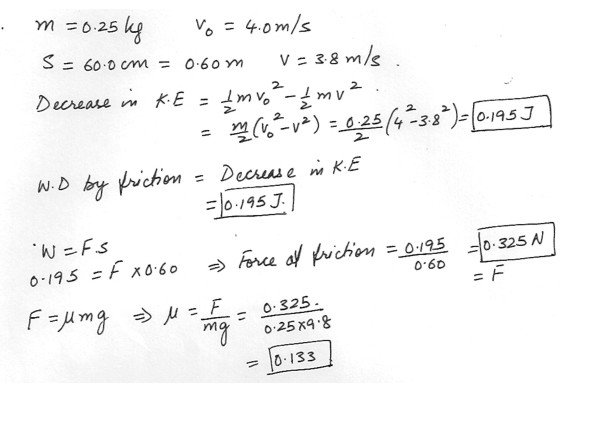 . m = 0.25 kg v₀ = 4.0 m/s
S = 60.0 cm = 0.60 m v = 3.8 m/s .
Decrease in K.E = ½mv₀² - ½mv² .
= m/2 (v₀² - v²) = 0.25/2 (4² - 3.8²) = 0.195 J
W.D by friction = Decrease in K.E
= 0.195 J.
W = F.S
0.195 = F x 0.60 ⇒ Force of friction = 0.195/0.60 = 0.325 N
= F
F = μmg ⇒ μ = F/mg = 0.325./0.25x9.8
= 0.133